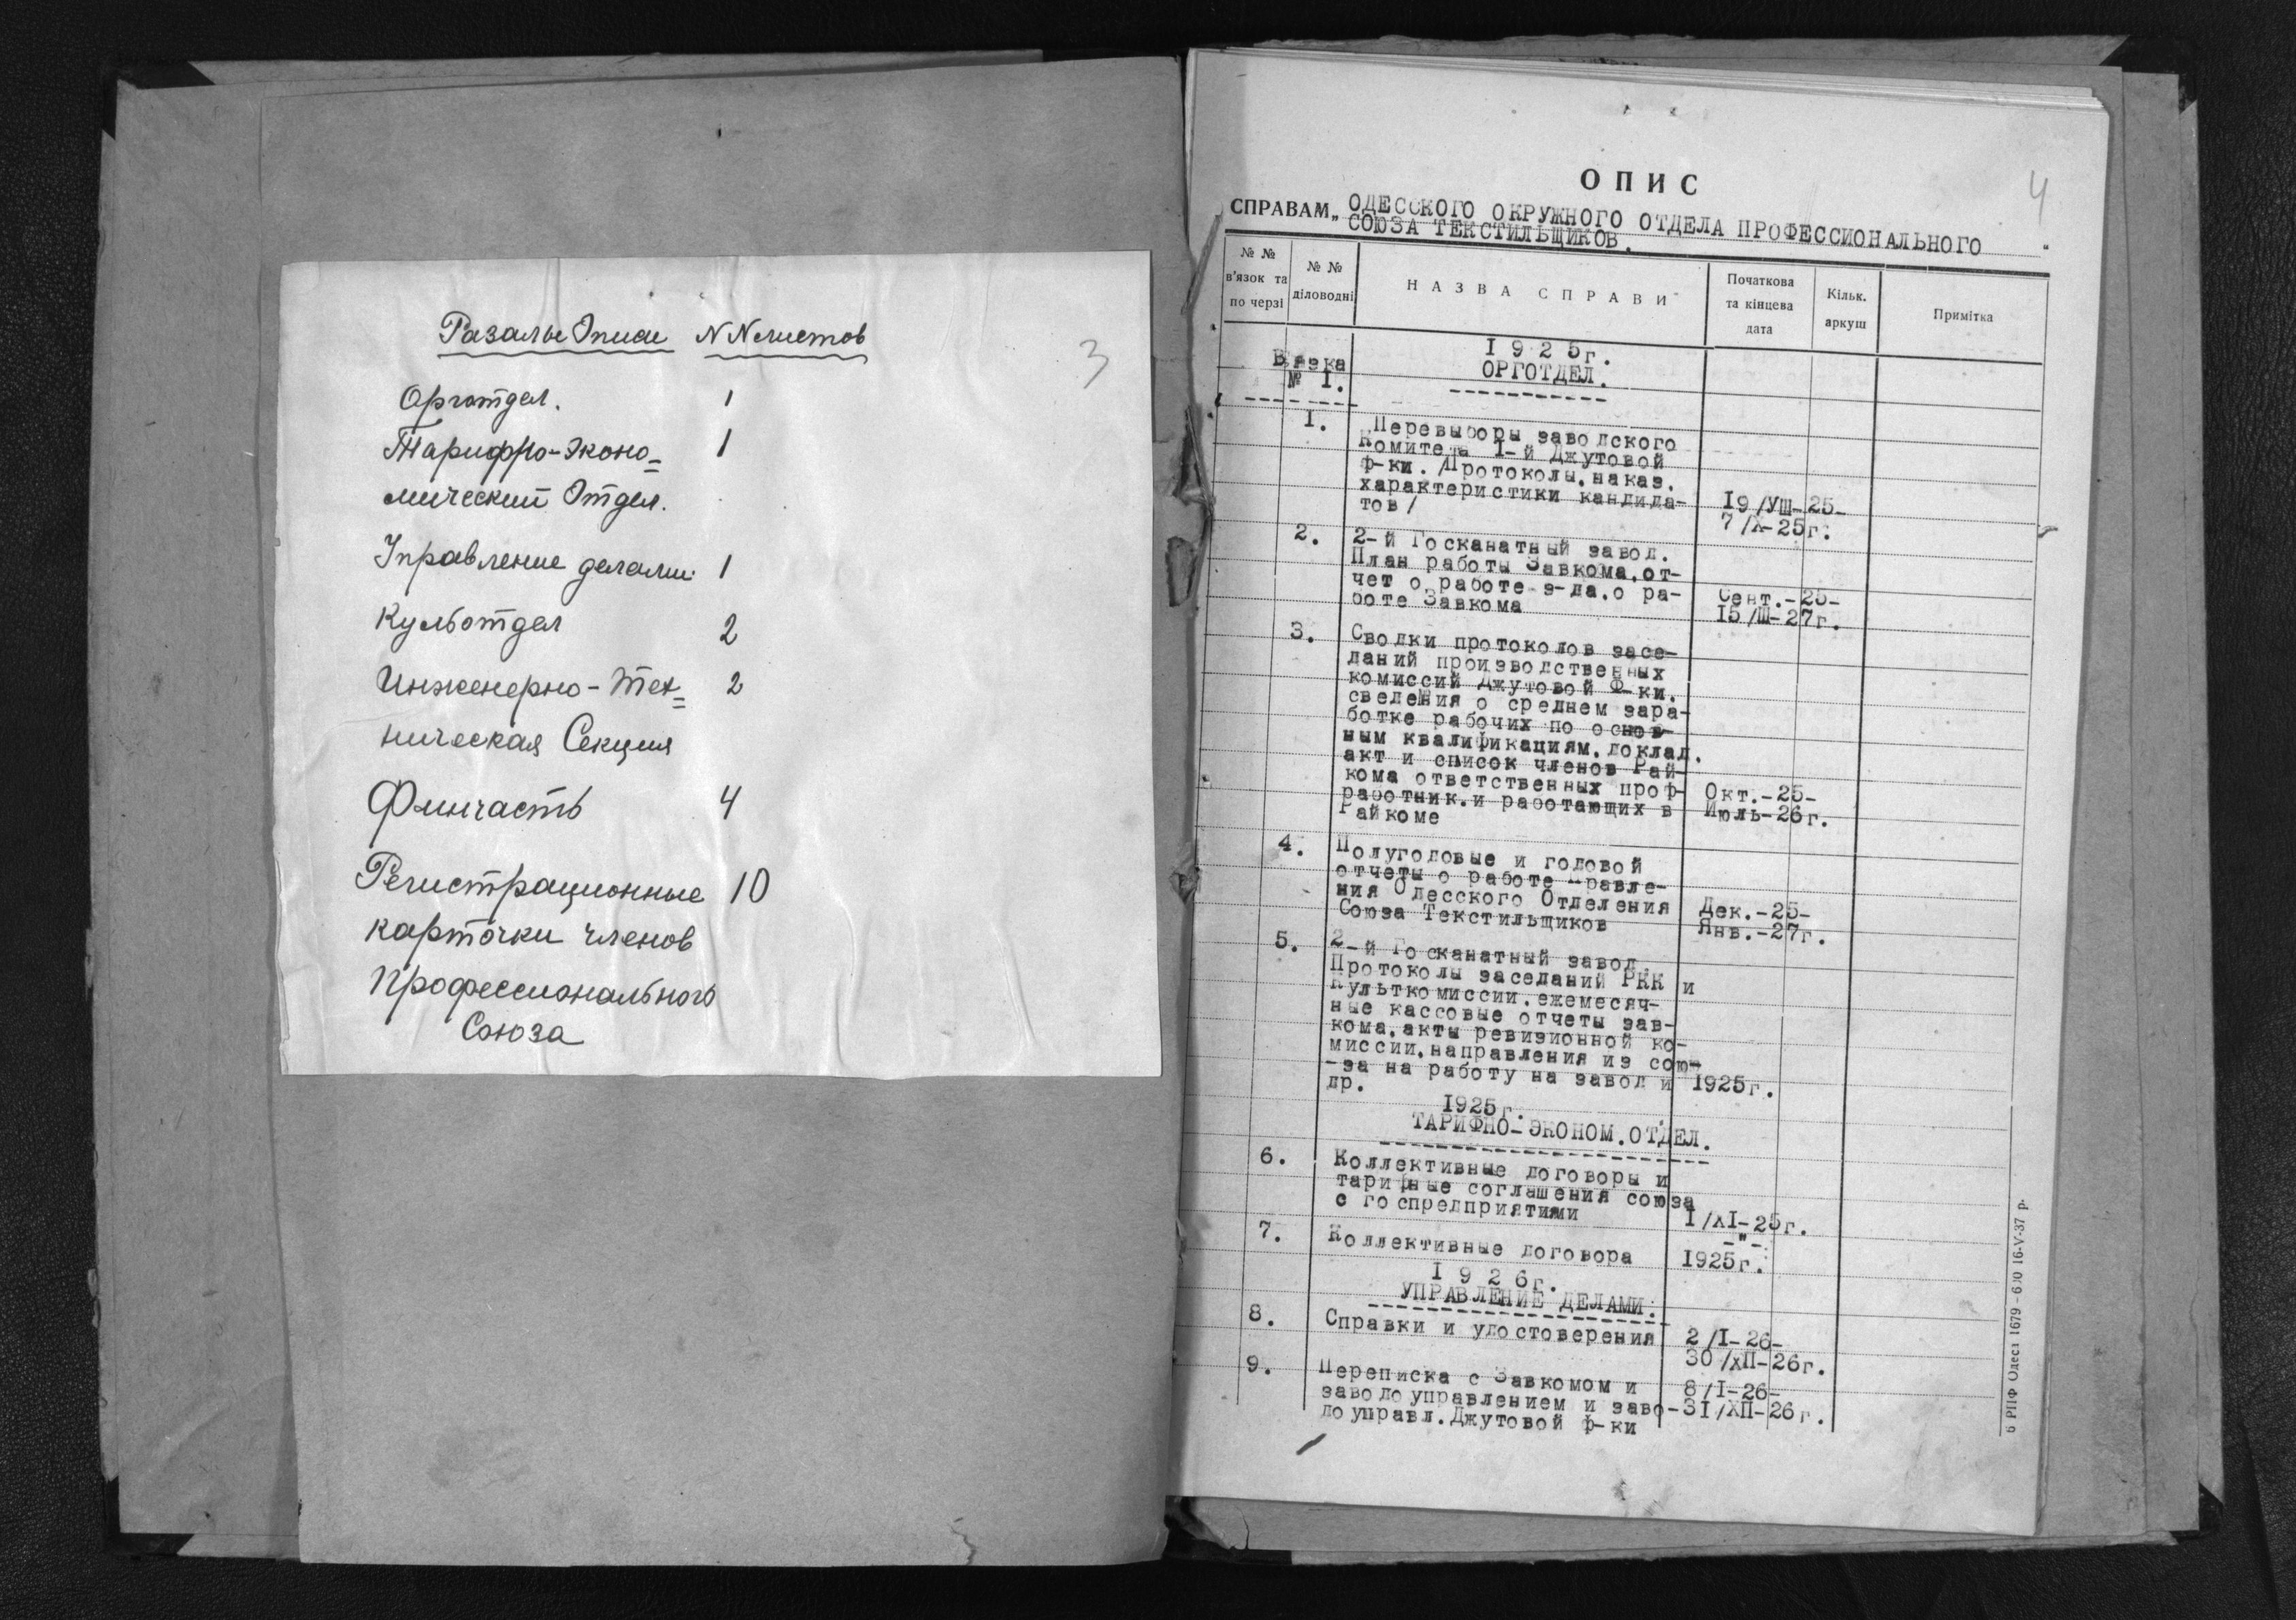 Разделы Описи N N листов
3
Орготдел. 1
Тарифно-Эконо= 1
мический Отдел.
Управление делами. 1
Культотдел 2
Инженерно-Тех= 2
ническая Секция
Финчасть 4
Регистрационные 10
карточки членов
Профессионального
Союза
4
ОПИС
СПРАВАМ „ ОДЕССКОГО ОКРУЖНОГО ОТДЕЛА ПРОФЕССИОНАЛЬНОГО
СОЮЗА ТЕКСТИЛЬЩИКОВ.
№ № в'язок та по черзі
№ № діловодні
НАЗВА СПРАВИ
Початкова та кінцева дата
Кільк. аркуш
Примітка
Вязка
№ I.
I 9 2 5г.
ОРГОТДЕЛ.
1. Перевыборы заводского
Комитета I-й Джутовой
ф-ки. /Протоколы, наказ.
характеристики кандида- 19/УШ-25-
тов/ 7/X-25г.
2. 2-й Госканатный завод.
План работы Завкома, от-
чет о работе з-да, о ра- Сент.-25-
боте Завкома 15/Ш-27г.
3. Сводки протоколов засе-
даний производственных
комиссий Джутовой Ф-ки.
сведения о среднем зара-
ботке рабочих по основ-
ным квалификациям, доклад.
акт и список членов Рай-
кома ответственных проф- Окт.-25-
работник. и работающих в Июль-26г.
Райкоме
4. Полугодовые и годовой
отчеты о работе Правле-
ния Одесского Отделения Дек.-25-
Союза Текстильщиков Янв.-27г.
5. 2-й Госканатный завод
Протоколы заседаний РКК и
Культкомиссии, ежемесяч-
ные кассовые отчеты зав-
кома, акты ревизионной ко-
миссии, направления из сою-
-за на работу на завод и 1925г.
др.
1925г.
ТАРИФНО-ЭКОНОМ. ОТДЕЛ.
6. Коллективные договоры и
тарифные соглашения союза
с госпредприятиями I/XI-25г.
-"-
7. Коллективные договора 1925г.
I 9 2 6г.
УПРАВЛЕНИЕ ДЕЛАМИ.
8. Справки и удостоверения 2/I-26-
30/ХП-26г.
9. Переписка с Завкомом и 8/I-26-
заводоуправлением и заво- 31/ХП-26г.
доуправл. Джутовой ф-ки